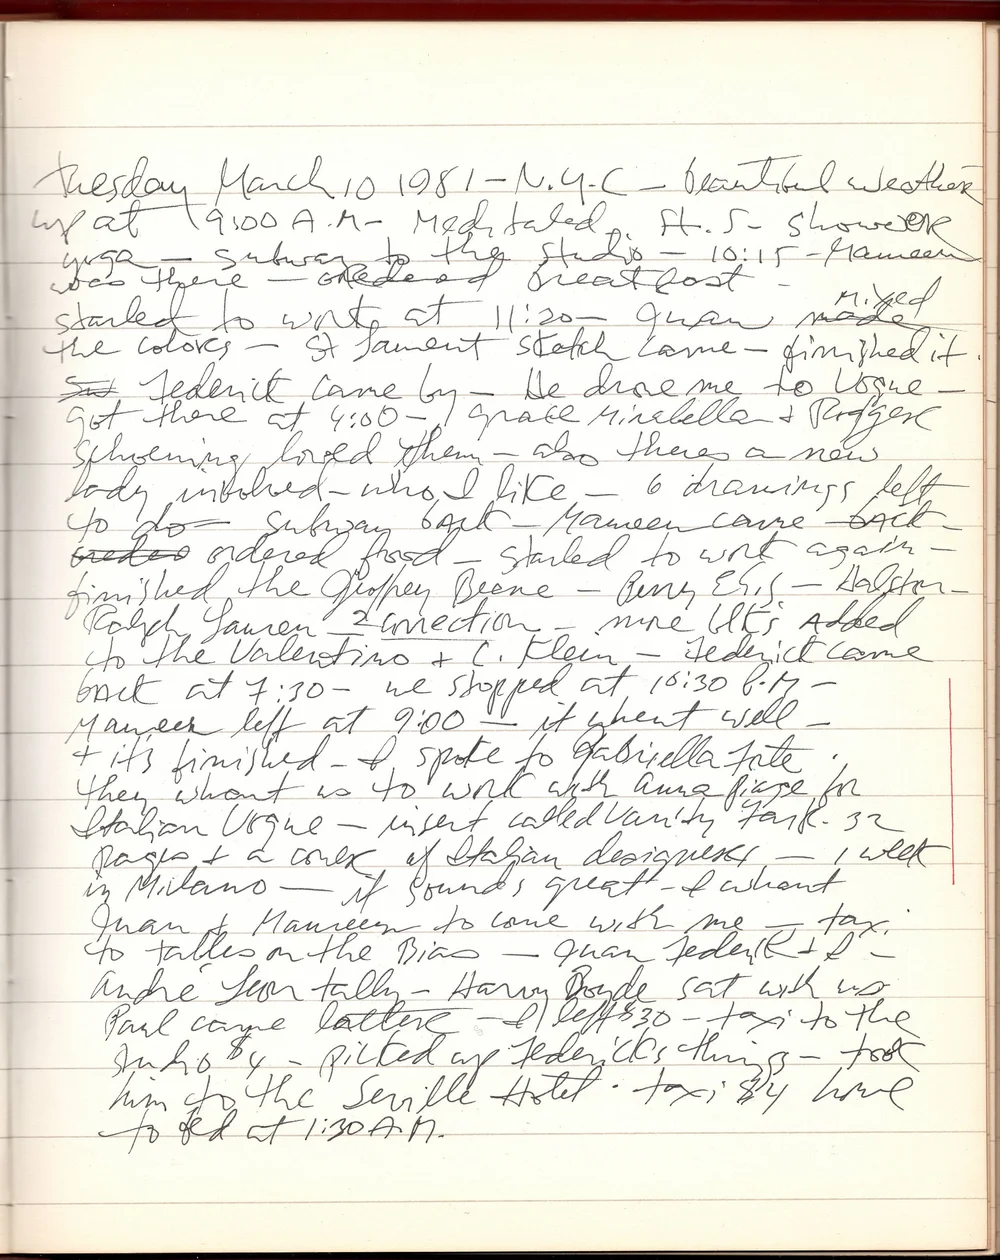 Tuesday March 10 1981 - N.Y.C - beautiful weather
up at 9:00 A.M - Meditated. St. S - shower
yoga - subway to the studio - 10:15 - Maureen
was there - ordered breakfast -
started to work at 11:20 - Juan made mixed
the colors - St Laurent sketch came - finished it.
Federick came by - He drove me to Vogue -
got there at 4:00 - grace Mirabella & Rogger
Schoening loved them - also theres a new
lady involved - who I like - 6 drawings left
to do - subway back - Maureen came back -
ordered food - started to work again -
finished the Jeoffrey Beene - Perry Ellis - Halston -
Ralph Lauren 2 correction - more blk's Added
to the Valentino + C. Klein - Federick came
back at 7:30 - we stopped at 10:30 P.M -
Maureen left at 9:00 - it whent well -
+ its finished - I spoke to Gabriella Forte.
they whant us to work with Anna Piage for
Italian Vogue - insert called Vanity Fair. 32
pages + a cover of Italian designers - 1 week
in Milano - it sounds great - I whant
Juan & Maureen to come with me - taxi
to tables on the Bias - Juan Federick + I -
Andre Leon tally - Harvy Boyde sat with us
Paul came latter - I left $30 - taxi to the
studio $4 - picked up Federicks things - took
him to the Seville Hotel. taxi $4 home
to bed at 1:30 A.M.